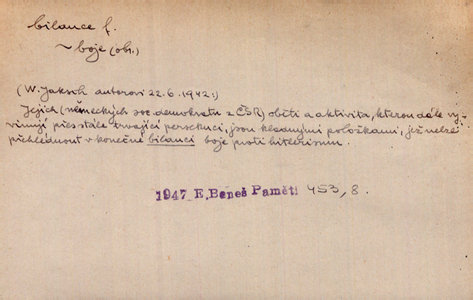 bilance f.
~ boje (obr.)
(W. Jaksch autorovi 22.6.1942:)
Jejich (německých soc. demokratů z ČSR) oběti a aktivita, kterou dále vy-
víjejí přes stále trvající persekuci, jsou kladnými položkami, jež nelze
přehlédnout v konečné bilanci boje proti hitlerismu.
1947 E. Beneš Paměti 453, 8.